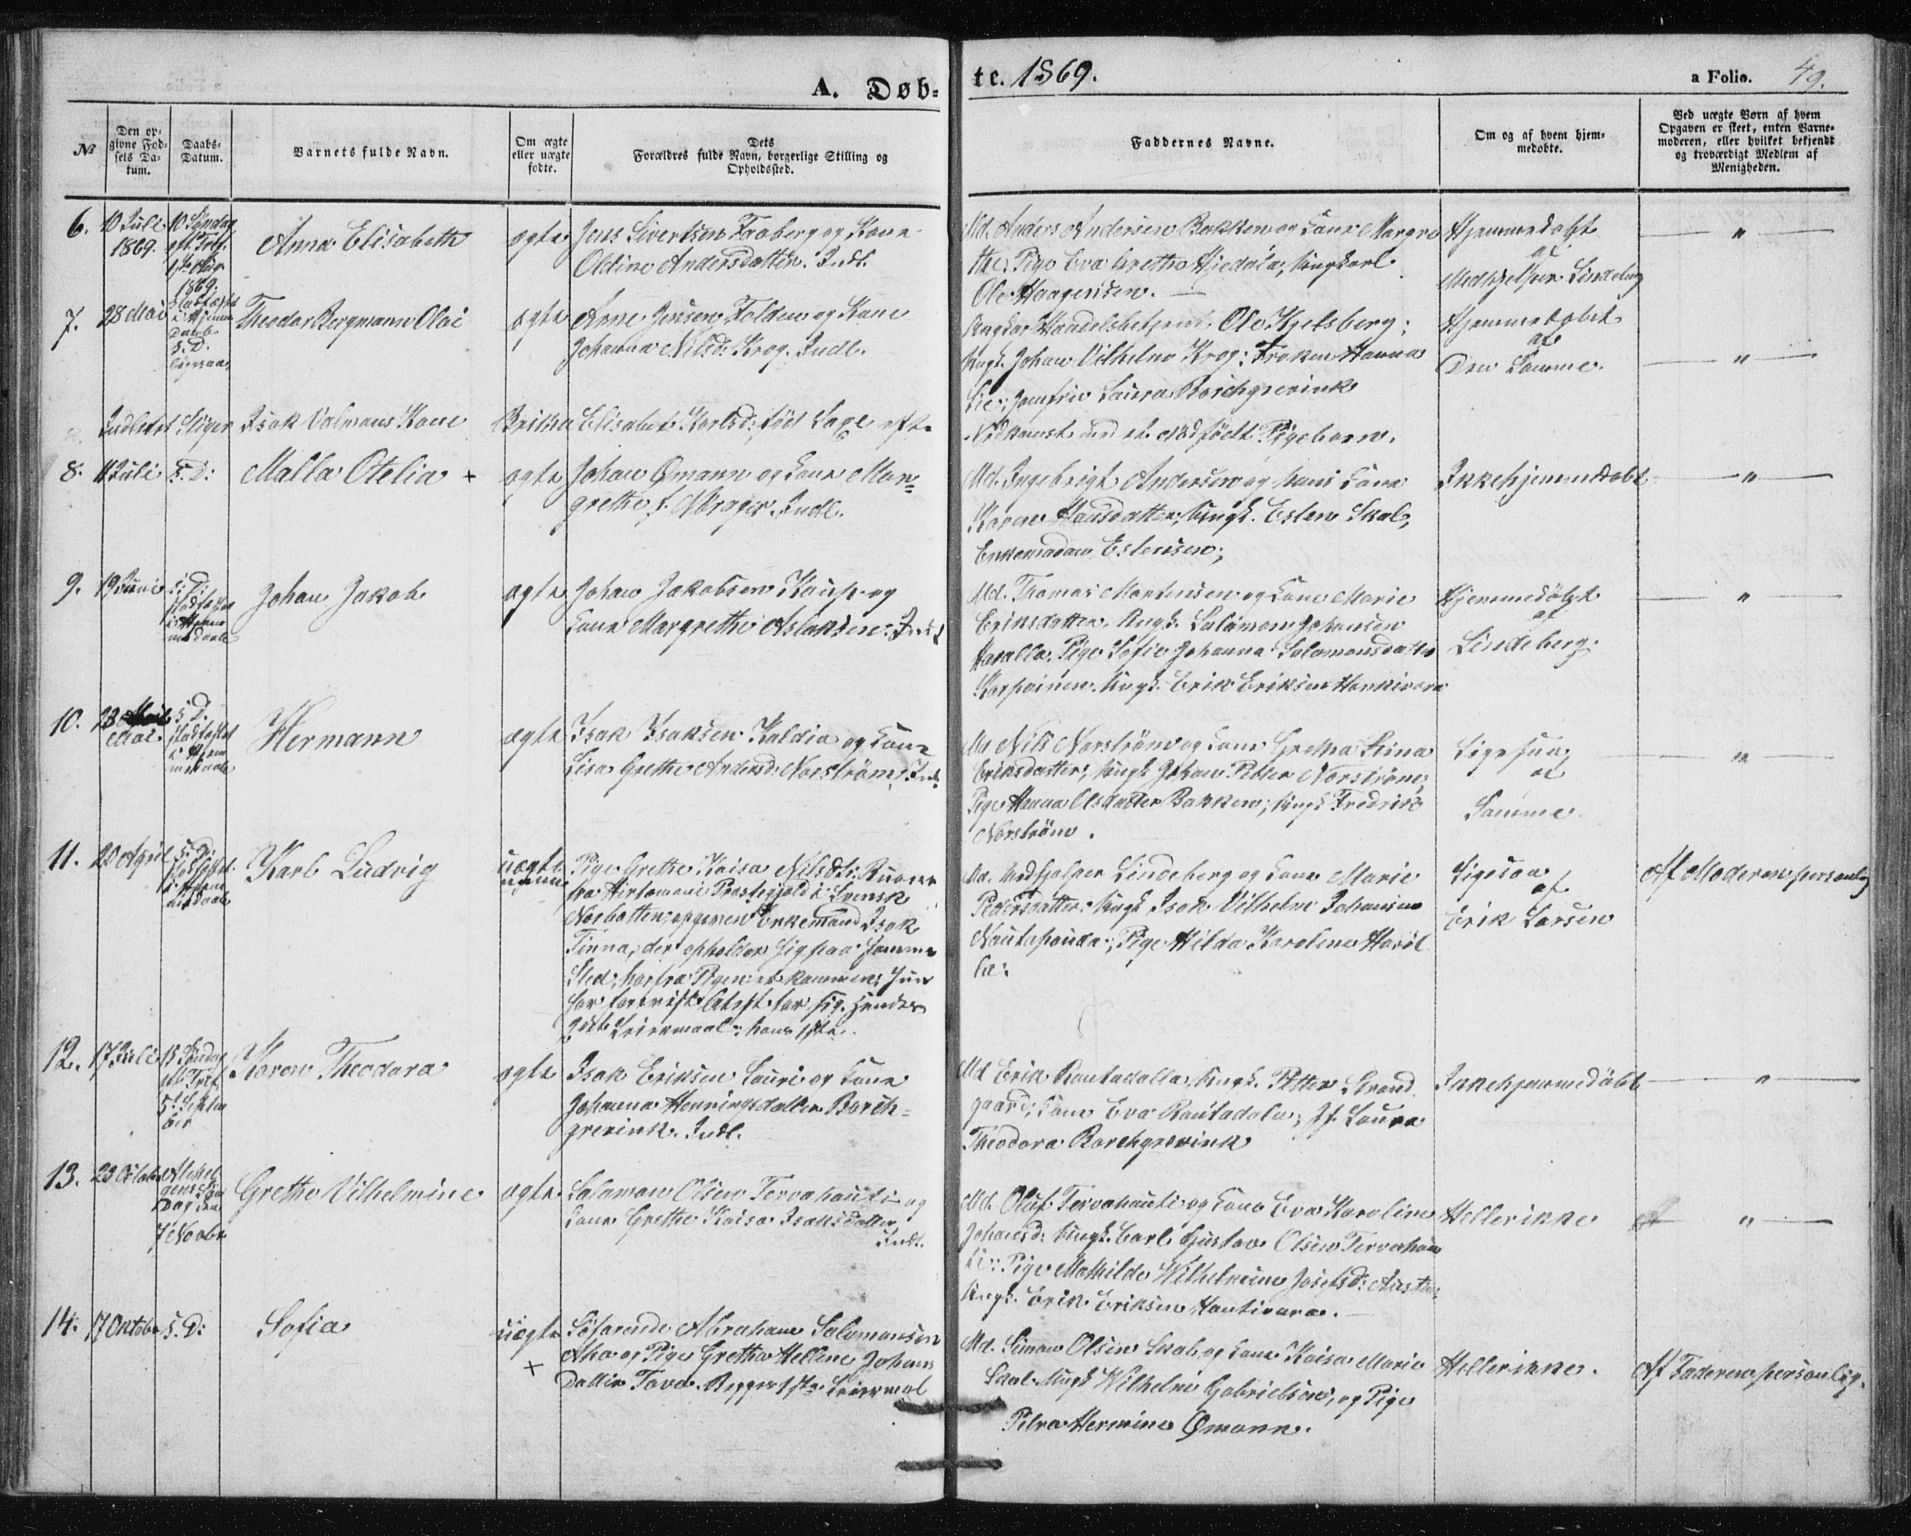 A. Døb-
te. 1869.
a Folio. 49.
No
Den op-
givne Fød-
sels Da-
tum.
Daabs-
Datum.
Barnets fulde Navn.
Om ægte
eller uægte
fødte.
Dets
Forældres fulde Navn, borgerlige Stilling og
Opholdssted.
Faddernes Navne.
Om og af hvem hjem-
medøbte.
Ved uægte Børn af hvem
Opgaven er skeet, enten Barne-
moderen, eller hvilket bekjendt
og troværdigt Medlem af
Menigheden.
6.
10 Juli
1869.
10 Søndag
eft. Tref.
1ste Aug.
1869.
Anna Elisabeth
ægte
Jens Sivertsen Froberg og Kone
Oldine Andersdatter. Indl.
Md. Anders Andersen Bakken og Kone Margre
the; Pige Eva Grethe Hjedala; Ungkarl
Ole Haagensen.
Hjemmedøbt
af
Medhjelper Lindeberg
"
7.
28 Mai
Stadfæstet
i Hjemme
daab
S. D.
ligesaa
Theodor Bergmann Olai
ægte
Arne Jensen Folden og Kone
Johanna Nilsd: Krog. Indl.
Handelsbetjent Ole Kjelsberg;
Ungk. Johan Vilhelm Krog; Frøken Hanna
Lie; Jomfru Laura Borchgrevink
Hjemmedøbt
af
Den Samme.
"
Indledet Isak Valmans Kone Britha Elisabet Karlsd: født Lage efter
Nedkomst med et dødfødt Pigebarn.
8.
11 Juli
S. D:
Malla Otelia +
ægte
Johan Ømann og Kone Mar=
grethe f. Indl.
Md. Ingebrigt Andersen og hans Kone
Karen Hansdatter, Ungk. Esten Skal,
Enkemadam Estensen;
Ikkehjemmedøbt
"
9.
19 Juni
S. D:
stadfæstet
i Hjemme
medaab
Johan Jakob
ægte
Johan Jakobsen Kaup og
Kone Margrethe Aslaksen. Indl
Md. Thomas Mortensen og Kone Marie
Eriksdatter. Ungk. Salamon Johansen
Haralla, Pige Sofie Johanna Salamonsdatter
Karpainen. Ungk. Erik Eriksen Hankivara
Hjemmedøbt
af
Lindeberg.
"
10.
23
Mai.
S. D.
stadfæstet
i Hjem
medaab
Hermann
ægte
Isak Isaksen Kaldia og Kone
Lisa Grethe Andersd: Norstrøm, Indl.
Md Nils Norstrøm og Kone Gretha Stina
Eriksdatter; Ungk. Johan Petter Norstrøm;
Pige Hanna Olsdatter Bakken; Ungk Fredrik
Norstrøm.
Ligesaa
af
Samme.
"
11.
20 April
S. D:
stadfæstet
i Hjem
medaab
Karl Ludvig
uægte
Pige Grethe Kaisa Nilsdt:
fra Præstegjeld i Svensk
Norbotten; opgiven Enkemand Isak
Tinna, der opholder sig paa samme
Sted, hvorfra Pigen er kommen; hun
har foreviist Attest for sig. Hendes
Leiermaal; hans 1ste.
Md. Medhjelper Lindeberg og Kone Marie
Pedersdatter. Ungk Isak Vilhelm Johansen
Nautapauda; Pige Hilda Karoline Havil
la:
Ligesaa
af
Erik Larsen
Af Moderen personlig
12.
17 Juli
15 Søndag
eft. Tref
5te Septem
ber
Karen Theodora
ægte
Isak Eriksen Lauri og Kone
Johanna Henningsdatter Borch=
grevink. Indl.
Md Erik Rautadalla, Ungk. Petter Strand
gaard; Kone Eva Rautadala; Jf. Laura
Theodora Borchgrevink
Ikkehjemmedøbt
"
13.
23 Oktobr
Allehel
gens
Dag den
7 Novbr
Grethe Vilhelmine
ægte
Salamon Olsen Tervahauti og
Kone Grethe Kaisa Isaksdatter
Indl.
Md. Oluf Tervahauti og Kone Eva Karoline
Johansd: Ungk. Carl Gustav Olsen Tervahau
ti; Pige Mathilde Wilhelmine Josefsd:
Ungk. Erik Eriksen Hantivara.
Hellerikke
"
14.
17 Oktobr
S. D:
Sofia
uægte
+
Søfarende Abraham Salamonsen
Aho og Pige Gretha Hellene Johans
datter Tava. Begges 1ste Leiermaal
Md. Simon Olsen Skab og Kone Kaisa Maria
Ungk Wilhelm Gabrielsen; og Pige
Petra Hermine Ømann.
Hellerikke.
Af Faderen personlig.